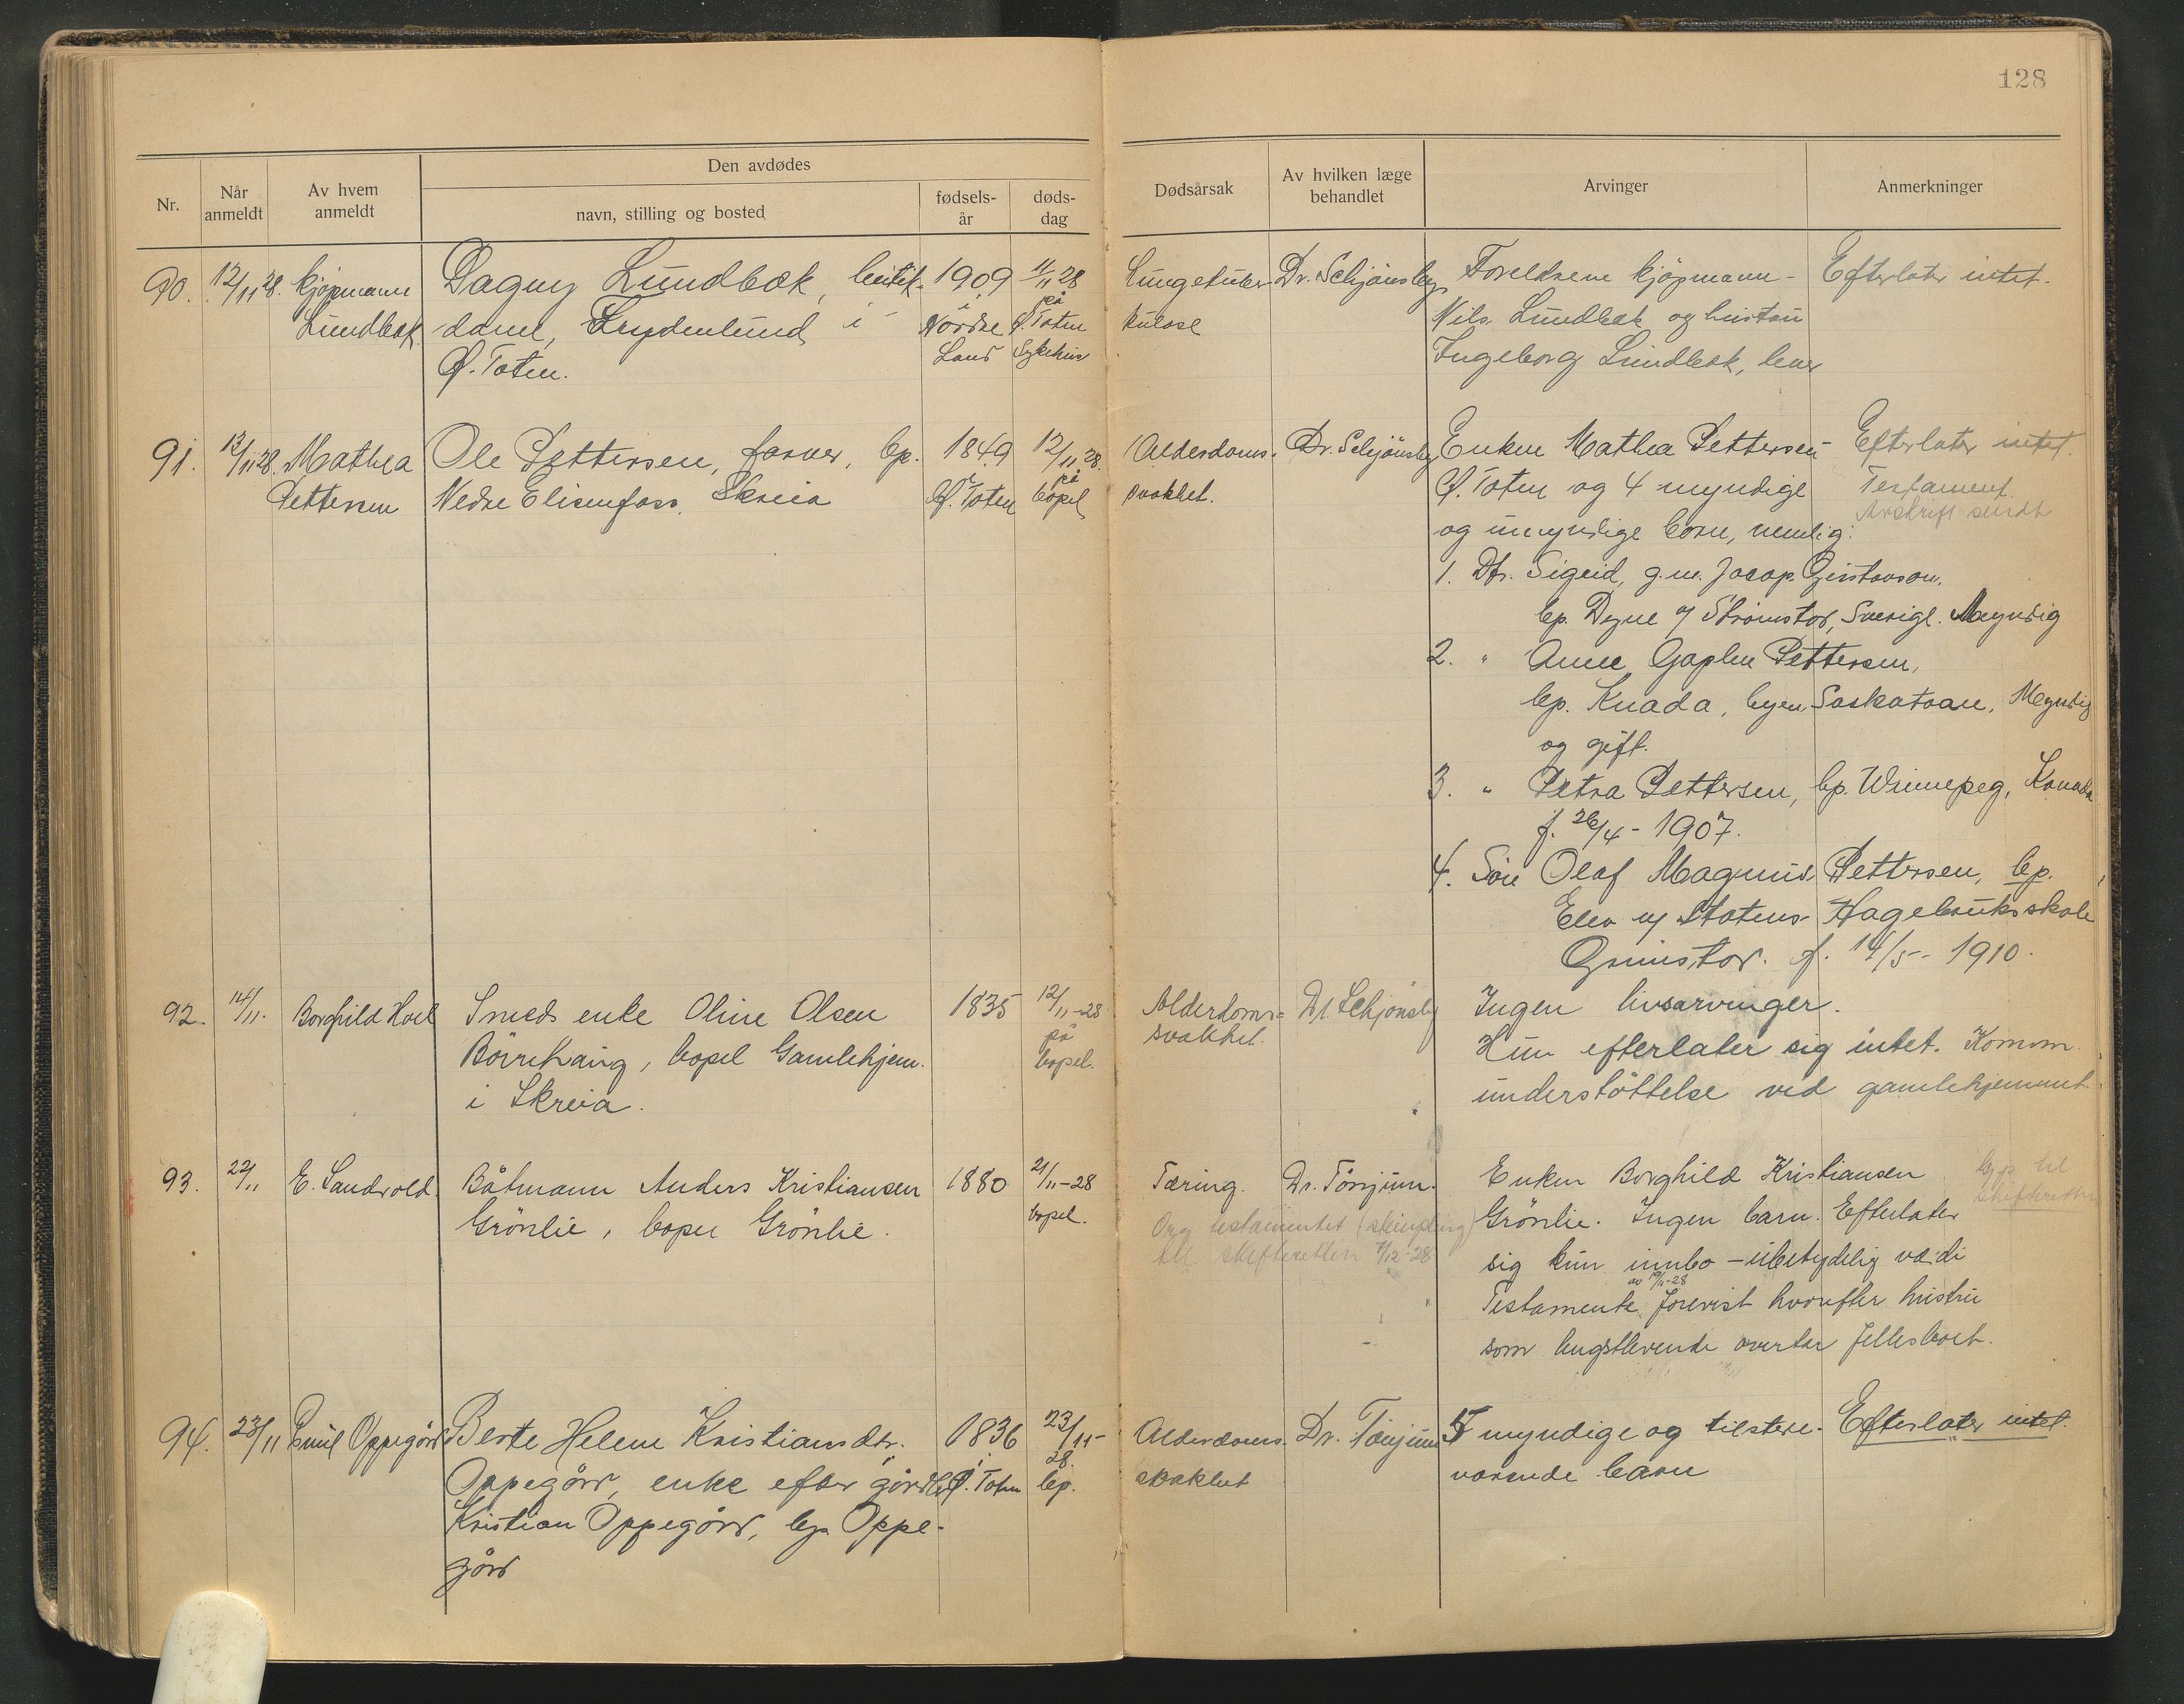 128
Den avdødes
Nr.
Når anmeldt
Av hvem anmeldt
navn, stilling og bosted
fødsels-år
døds-dag
Dødsårsak
Av hvilken læge behandlet
Arvinger
Anmerkninger
90. 12/11 28. kjøpmann Lundbæk.
Dagny Lundbæk, butik-
dame, Frydenlund i
Ø. Toten.
1909 i Nordre Land
11/11 28 på Ø. Toten Sykehus
Lungetuber-
kulose
Dr. Schjønsby
Foreldrene kjøpmann
Nils Lundbæk og hustru
Ingeborg Lundbæk, lever
Efterlater intet.
91. 13/11 28. Mathea Pettersen
Ole Pettersen, farver, bp.
Nedre Elisenfoss, Skreia
1849 i Ø. Toten
12/11 28. på bopel
Alderdoms-
svakhet.
Dr. Schjønsby
Enken Mathea Pettersen
Ø. Toten og 4 myndige
og umyndige born, nemlig:
1. Dtr. Sigrid, g.m. Jacop Gustavson.
bp. Dyne v/ Strømstad, Sverige. Myndig
2. " Anne Gaplen Pettersen,
bp. Knada, byen Saskatoan, Myndig
og gift.
3. " Petra Pettersen, bp. Winnepeg, Kanada
f. 26/4 - 1907.
4. Søn Olaf Magnus Pettersen, bp.
Elev v/ Statens Hagebruksskole
Grimstad. f. 14/5 - 1910.
Efterlater intet.
Testament.
Avskrift sendt
92. 14/11. Borghild Hoel
Smeds enke Oline Olsen
Börrehaug, bopel Gamlehjem.
i Skreia.
1835
12/11-28 på bopel.
Alderdoms=
svakhet.
Dr Schjønsby
Ingen livsarvinger.
Hun efterlater sig intet. Komm
understöttelse ved gamlehjemmet.
93. 22/11 E. Sandvold.
Båtmann Anders Kristiansen
Grönlie, bopel Grönlie.
1880
21/11-28 bopel.
Tæring.
Dr. Tönjum.
Org testamentet (stempling)
til skifteretten 7/12-28
Enken Borghild Kristiansen
Grönlie. Ingen barn. Efterlater
sig kun innbo - ubetydelig værdi
av 19/11-28
Testamente forevist hvorefter hustru
som lengstlevende overtar fellesboet.
til
skifteretten
94. 23/11 Emil Oppegård
Berte Helene Kristiansdtr.
Oppegård, enke efter gårdbr.
Kristian Oppegård, bp. Oppe-
gård
1836 i Ø. Toten
23/11-28. bp.
Alderdoms-
svakhet
Dr. Tönjum
5 myndige og tilstede-
værende barn
Efterlater intet.